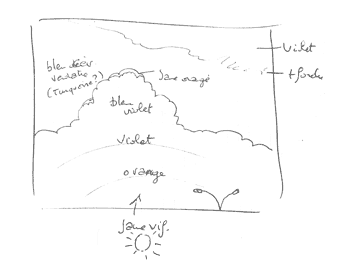 violet
bleu
(Turquoise?)
+ foncé
Jaune orangé
bleu
violet
violet
orange
Jaune vif.